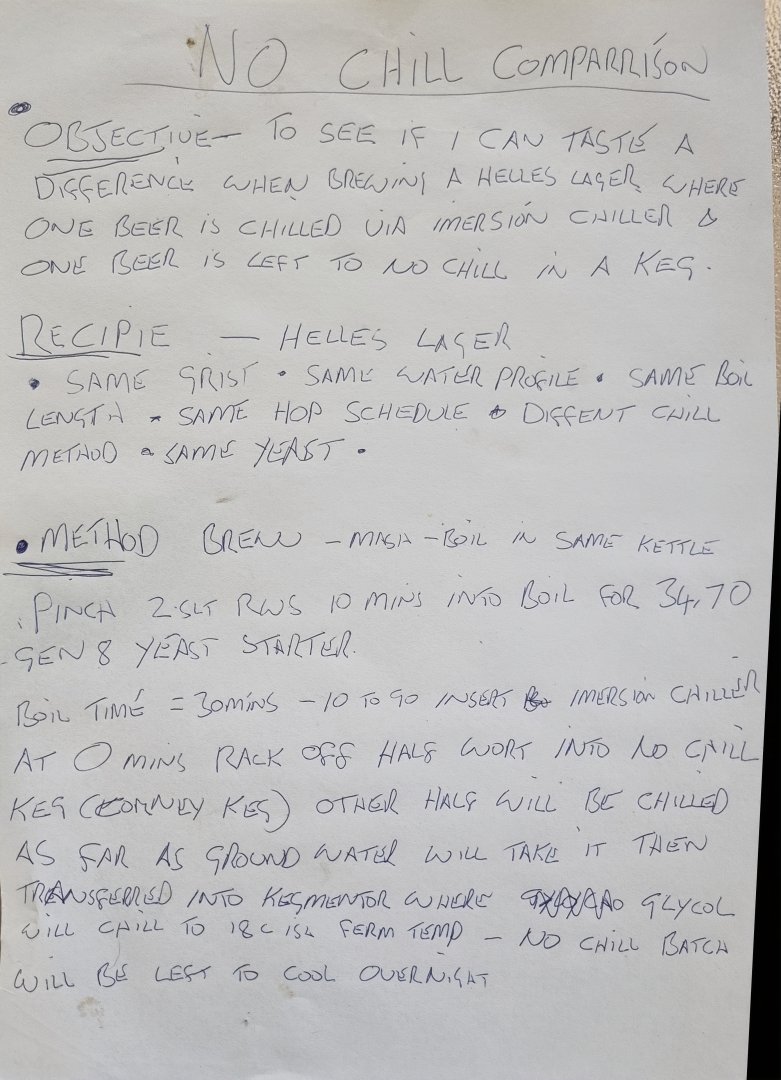 NO CHILL COMPARRISON
• OBJECTIVE – TO SEE IF I CAN TASTE A
DIFFERENCE WHEN BREWING A HELLES LAGER WHERE
ONE BEER IS CHILLED VIA IMERSION CHILLER &
ONE BEER IS LEFT TO NO CHILL IN A KEG.
RECIPIE – HELLES LAGER
• SAME GRIST • SAME WATER PROFILE • SAME BOIL
LENGTH • SAME HOP SCHEDULE • DIFFENT CHILL
METHOD • SAME YEAST •
• METHOD BREW – MASH – BOIL IN SAME KETTLE
PINCH 2.5LT RWS 10 MINS INTO BOIL FOR 34,70
- GEN 8 YEAST STARTER.
BOIL TIME = 30MINS – 10 TO GO INSERT IMERSION CHILLER
AT 0 MINS RACK OFF HALF WORT INTO NO CHILL
KEG (CORNEY KEG) OTHER HALF WILL BE CHILLED
AS FAR AS GROUND WATER WILL TAKE IT THEN
TRANSFERRED INTO KEGMENTOR WHERE GLYCOL
WILL CHILL TO 18C ISH FERM TEMP – NO CHILL BATCH
WILL BE LEFT TO COOL OVERNIGHT